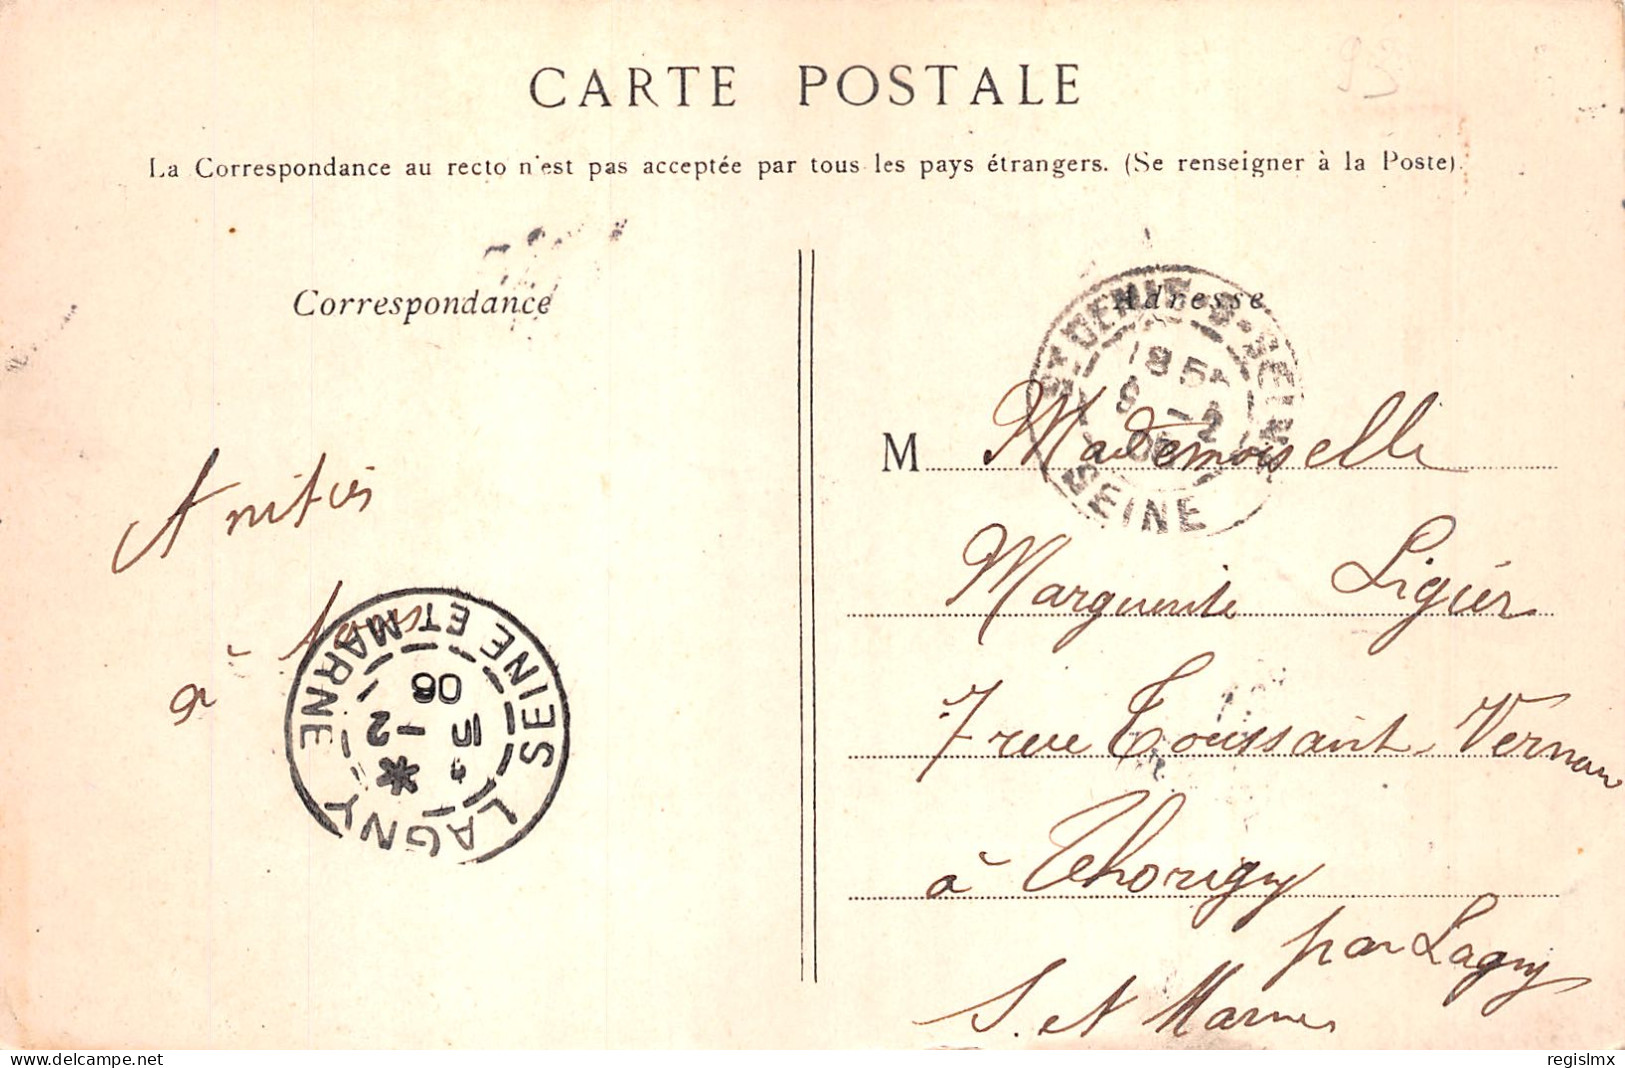 93
CARTE POSTALE
La Correspondance au recto n'est pas acceptée par tous les pays étrangers. (Se renseigner à la Poste).
Correspondance
Amitiés
à
LAGNY
SEINE ET MARNE
-2
06
Adresse
ST DENIS-S-SEINE
SEINE
-2
M Mademoiselle
Marguerite Ligier
7 rue Toussaint-Vernan
à Thorigny
par Lagny
S. et Marne
delcampe.net
regislmx